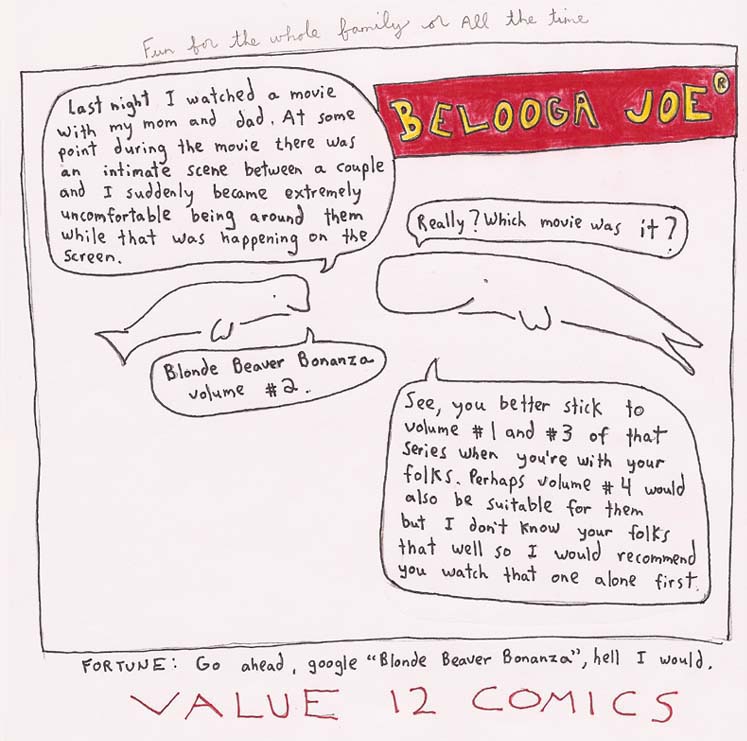 Fun for the whole family or All the time
BELOOGA JOE®
Last night I watched a movie
with my mom and dad. At some
point during the movie there was
an intimate scene between a couple
and I suddenly became extremely
uncomfortable being around them
while that was happening on the
screen.
Really? Which movie was it?
Blonde Beaver Bonanza
volume #2.
See, you better stick to
volume #1 and #3 of that
series when you're with your
folks. Perhaps volume #4 would
also be suitable for them
but I don't know your folks
that well so I would recommend
you watch that one alone first.
FORTUNE: Go ahead, google "Blonde Beaver Bonanza", hell I would.
VALUE 12 COMICS